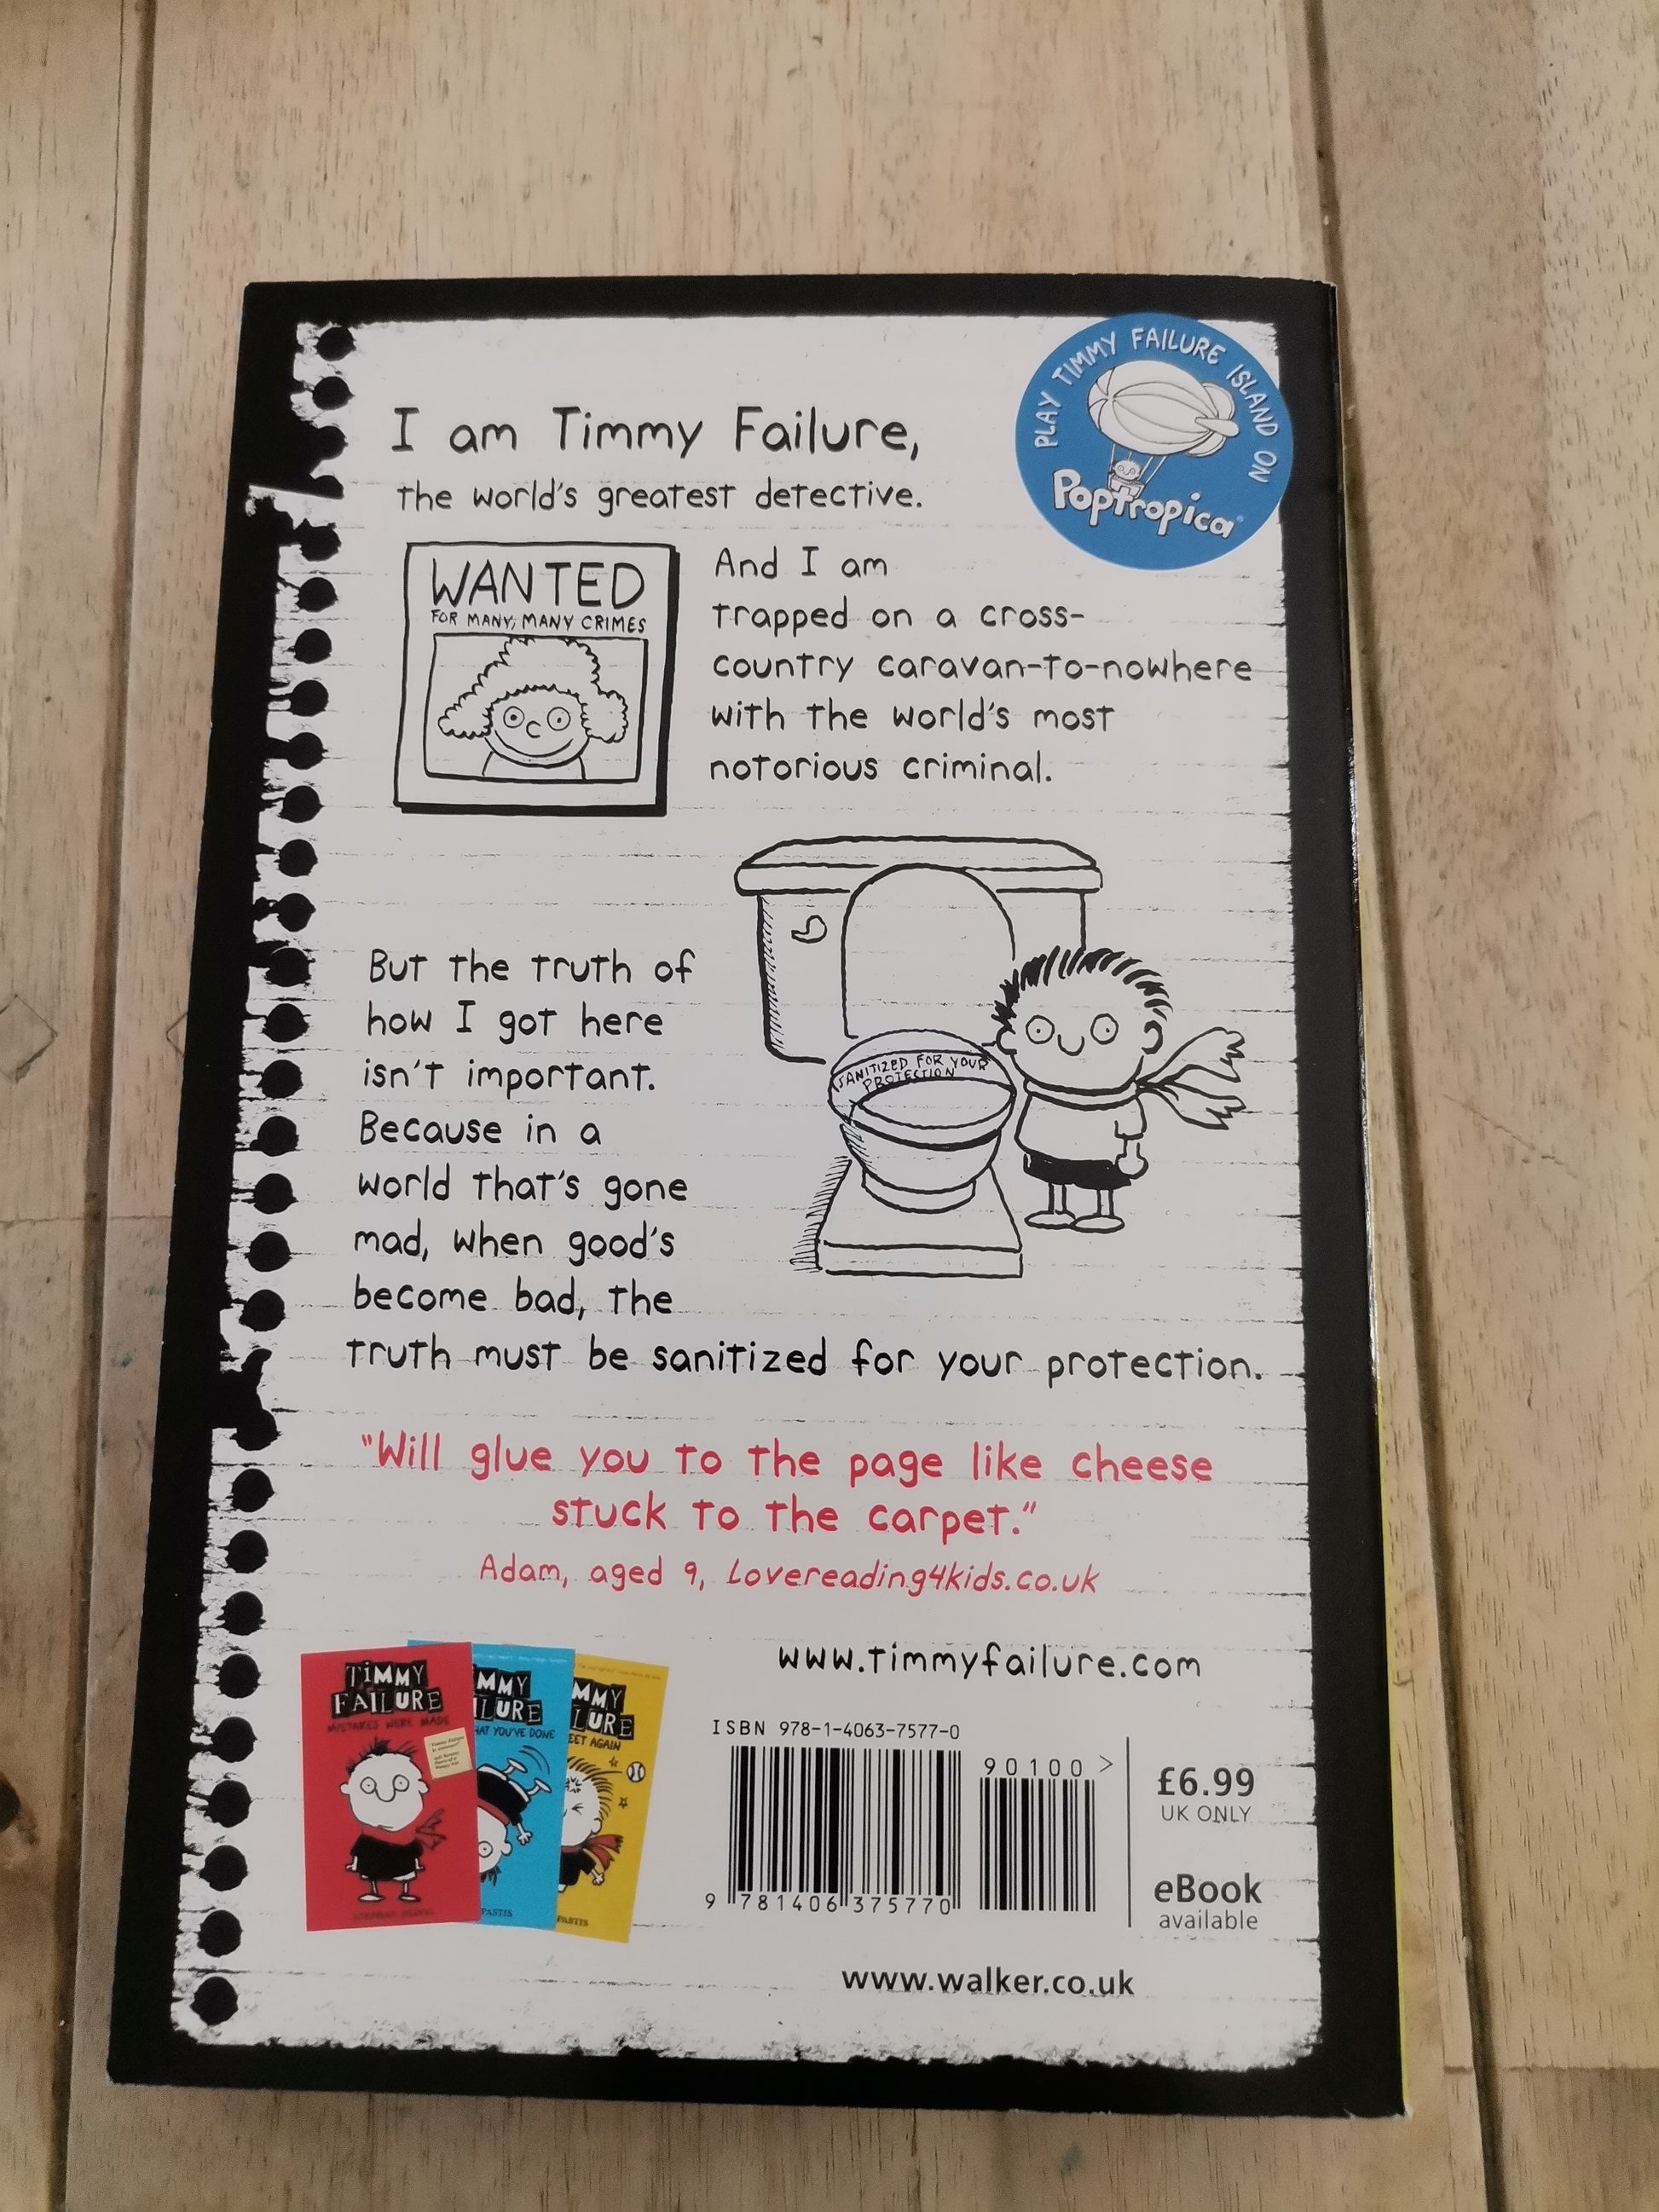 PLAY TIMMY FAILURE ISLAND ON
Poptropica
I am Timmy Failure,
the world's greatest detective.
WANTED
FOR MANY, MANY CRIMES
And I am
trapped on a cross-
country caravan-to-nowhere
with the world's most
notorious criminal.
But the truth of
how I got here
isn't important.
Because in a
world that's gone
mad, when good's
become bad, the
truth must be sanitized for your protection.
SANITIZED FOR YOUR
PROTECTION
"Will glue you to the page like cheese
stuck to the carpet."
Adam, aged 9, Lovereading4kids.co.uk
TIMMY
FAILURE
MISTAKES WERE MADE
MMY
LURE
HAT YOU'VE DONE
PASTIS
MMY
LURE
EET AGAIN
PASTIS
www.timmyfailure.com
ISBN 978-1-4063-7577-0
90100 >
9 781406 375770
£6.99
UK ONLY
eBook
available
www.walker.co.uk